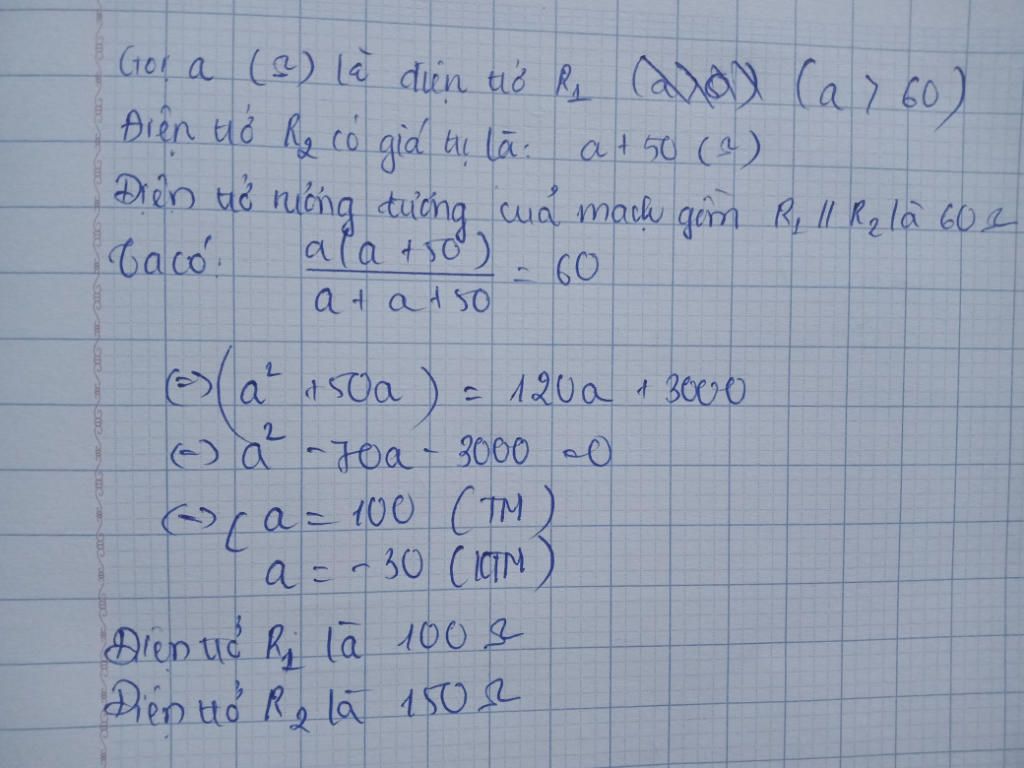 Gọi a (Ω) là điện trở R₁ (a > 60)
Điện trở R₂ có giá trị là: a + 50 (Ω)
Điện trở tương đương của mạch gồm R₁ // R₂ là 60 Ω
Ta có: a(a + 50) / (a + a + 50) = 60
<=> (a² + 50a) = 120a + 3000
<=> a² - 70a - 3000 = 0
<=> [ a = 100 (TM)
a = -30 (KTM)
Điện trở R₁ là 100 Ω
Điện trở R₂ là 150 Ω